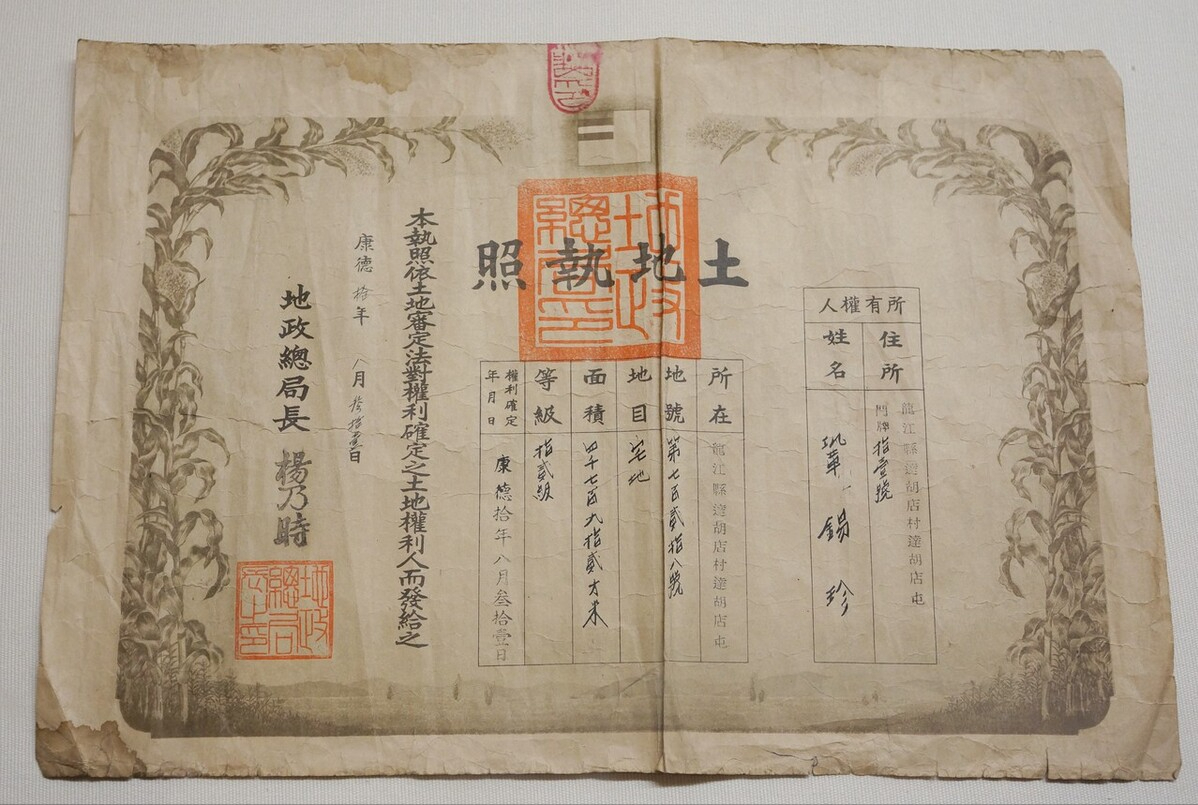 土地執照
所有權人
住所
龍江縣達胡店村達胡店屯
門牌拾壹號
姓名
錫珍
所在
龍江縣達胡店村達胡店屯
地號
第七百貳拾八號
地目
宅地
面積
四千七百九拾貳方米
等級
拾貳級
權利確定
年月日
康德拾年八月叁拾壹日
本執照依土地審定法對權利確定之土地權利人而發給之
康德拾年八月叁拾壹日
地政總局長 楊乃時
地政總局印
地政總局長印